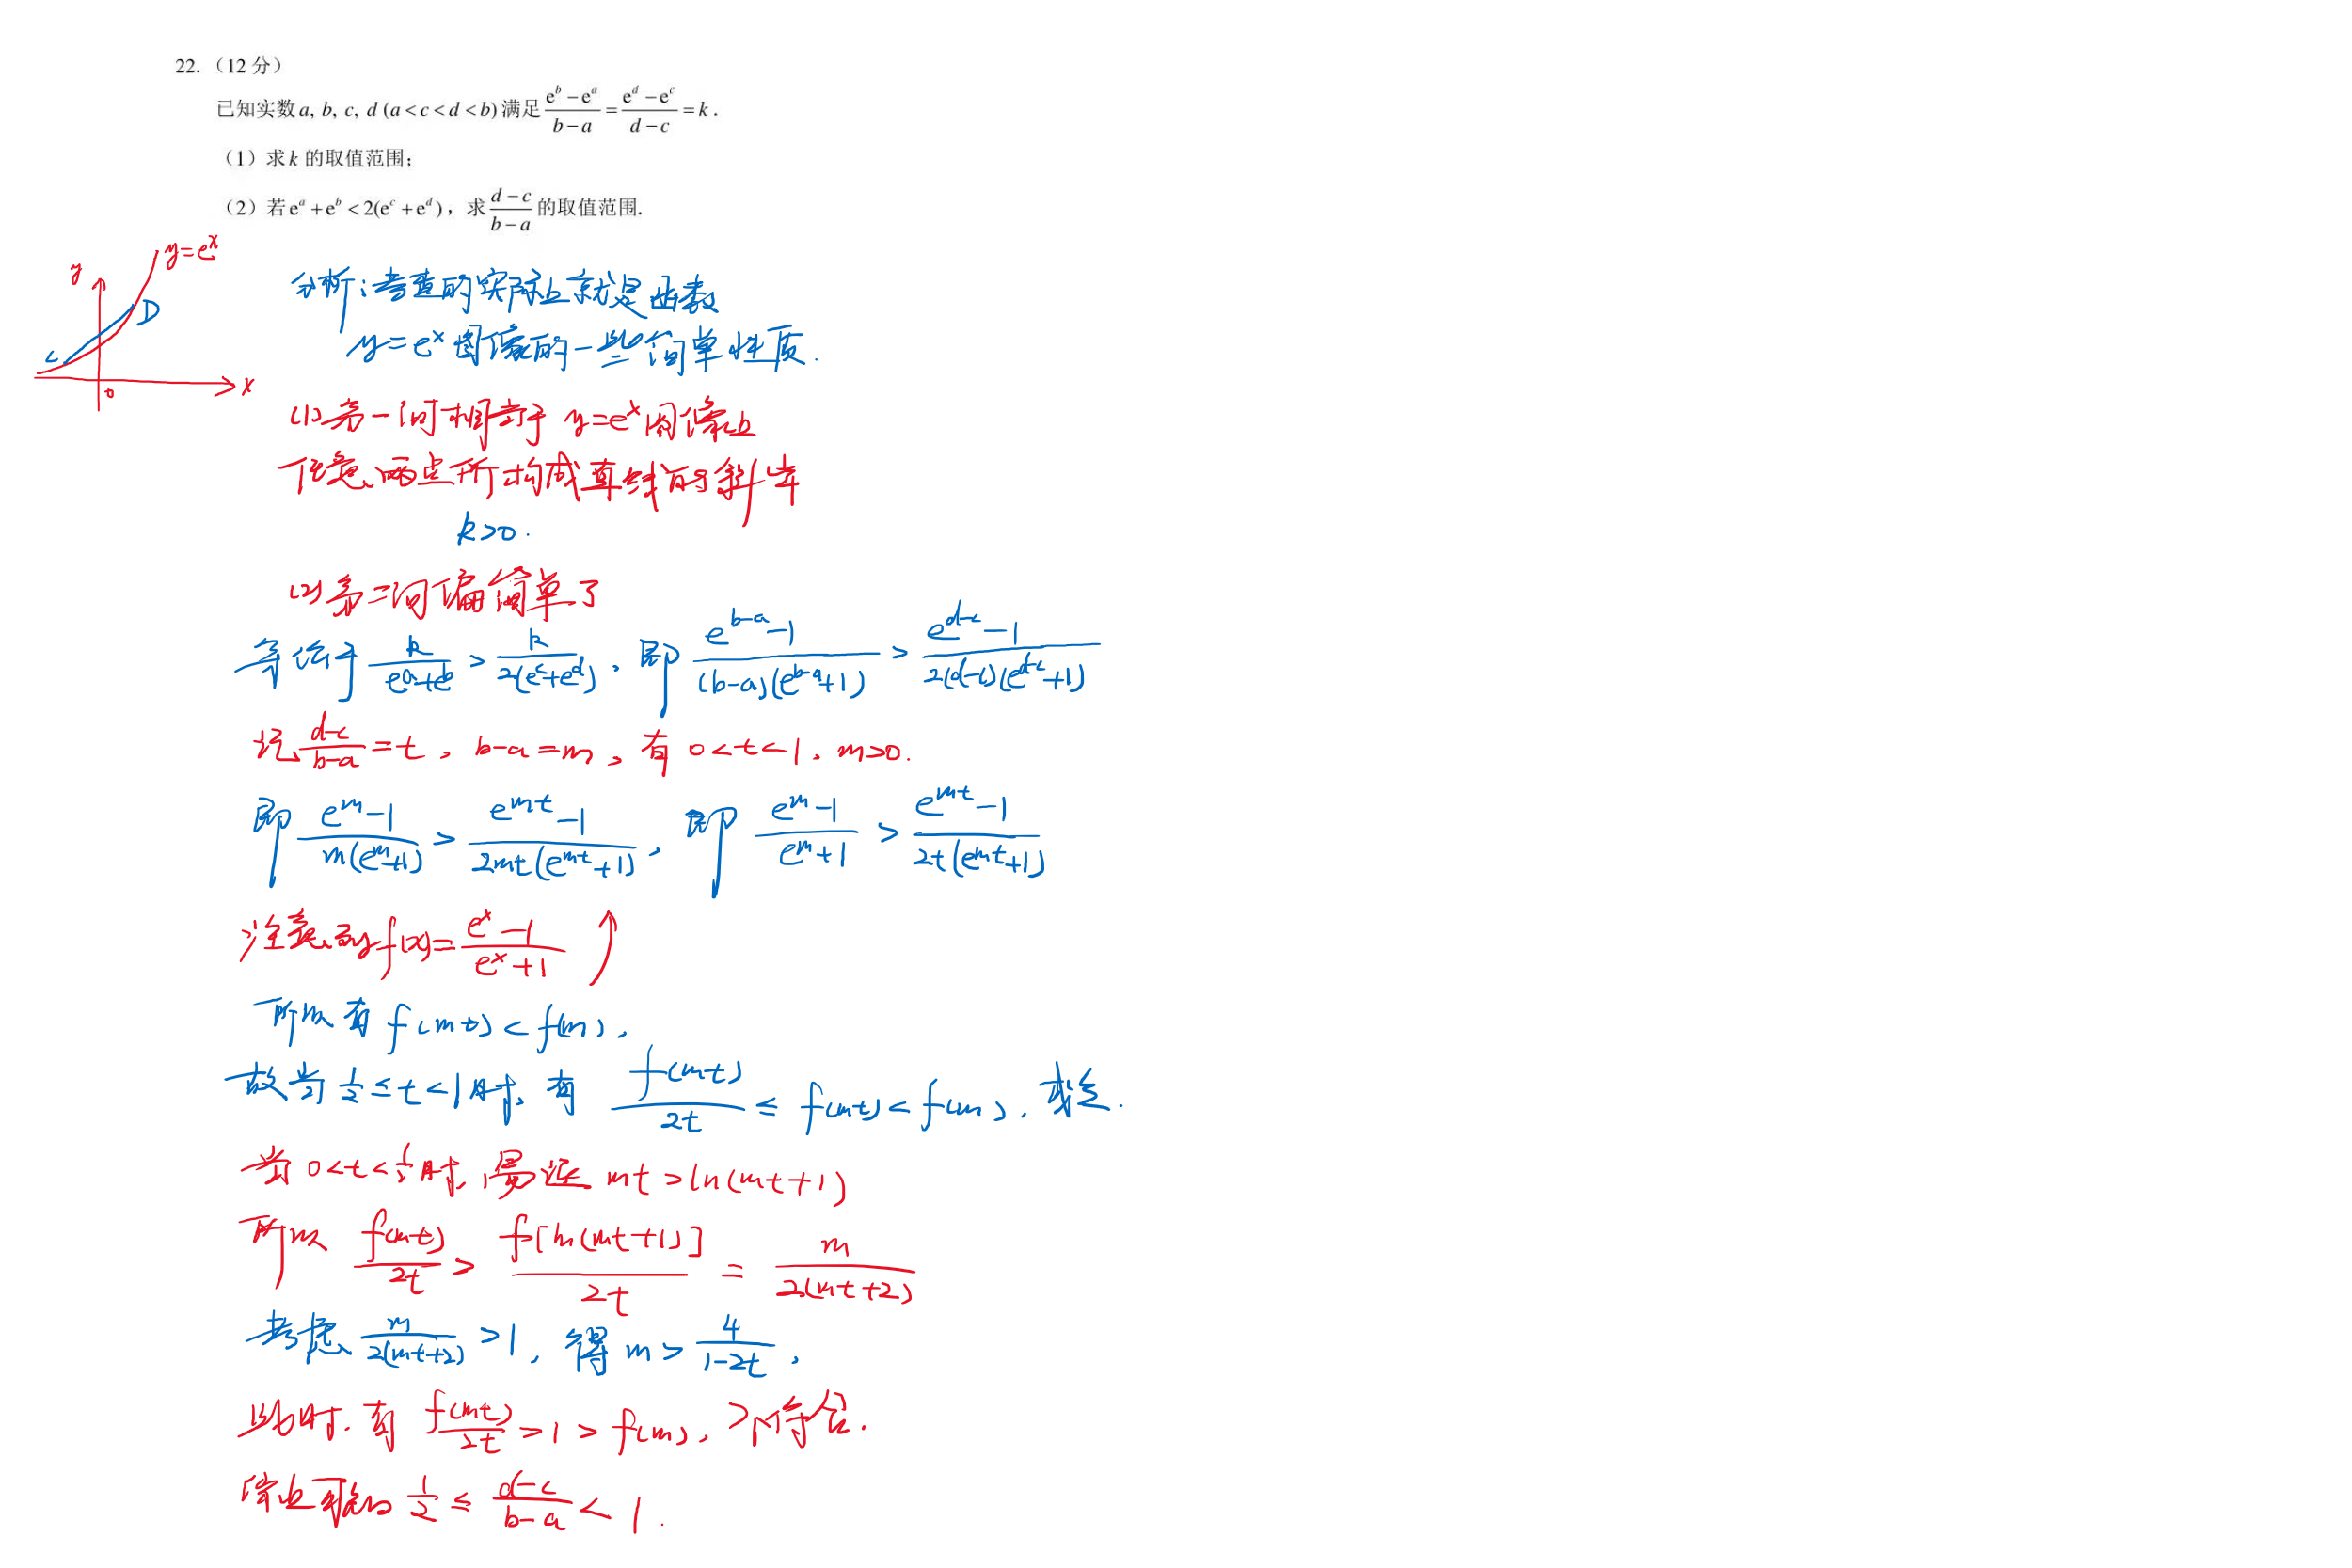 22. （12 分）
已知实数 a, b, c, d (a < c < d < b) 满足 \frac{e^b - e^a}{b - a} = \frac{e^d - e^c}{d - c} = k .
（1）求 k 的取值范围；
（2）若 e^a + e^b < 2(e^c + e^d)，求 \frac{d - c}{b - a} 的取值范围.
y=e^x
y
D
C
x
0
分析：考查的实际上就是函数
y=e^x 图像的一些简单性质.
(1) 第一问相当于 y=e^x 图像上
任意两点所构成直线的斜率
k>0.
(2) 第二问偏简单了
等价于 \frac{k}{e^a+e^b} > \frac{k}{2(e^c+e^d)}, 即 \frac{e^{b-a}-1}{(b-a)(e^{b-a}+1)} > \frac{e^{d-c}-1}{2(d-c)(e^{d-c}+1)}
记 \frac{d-c}{b-a}=t, b-a=m, 有 0<t<1, m>0.
即 \frac{e^m-1}{m(e^m+1)} > \frac{e^{mt}-1}{2mt(e^{mt}+1)}, 即 \frac{e^m-1}{e^m+1} > \frac{e^{mt}-1}{2t(e^{mt}+1)}
注意到 y=f(x)=\frac{e^x-1}{e^x+1} ↑
所以有 f(mt)<f(m),
故当 \frac{1}{2}≤t<1时, 有 \frac{f(mt)}{2t} ≤ f(mt)<f(m), 成立.
当 0<t<\frac{1}{2}时, 易证 mt>ln(mt+1)
所以 \frac{f(mt)}{2t} > \frac{f[ln(mt+1)]}{2t} = \frac{m}{2(mt+2)}
考虑 \frac{m}{2(mt+2)} >1, 得 m> \frac{4}{1-2t},
此时, 有 \frac{f(mt)}{2t} >1 > f(m), 不符合.
综上可知 \frac{1}{2} ≤ \frac{d-c}{b-a} < 1.